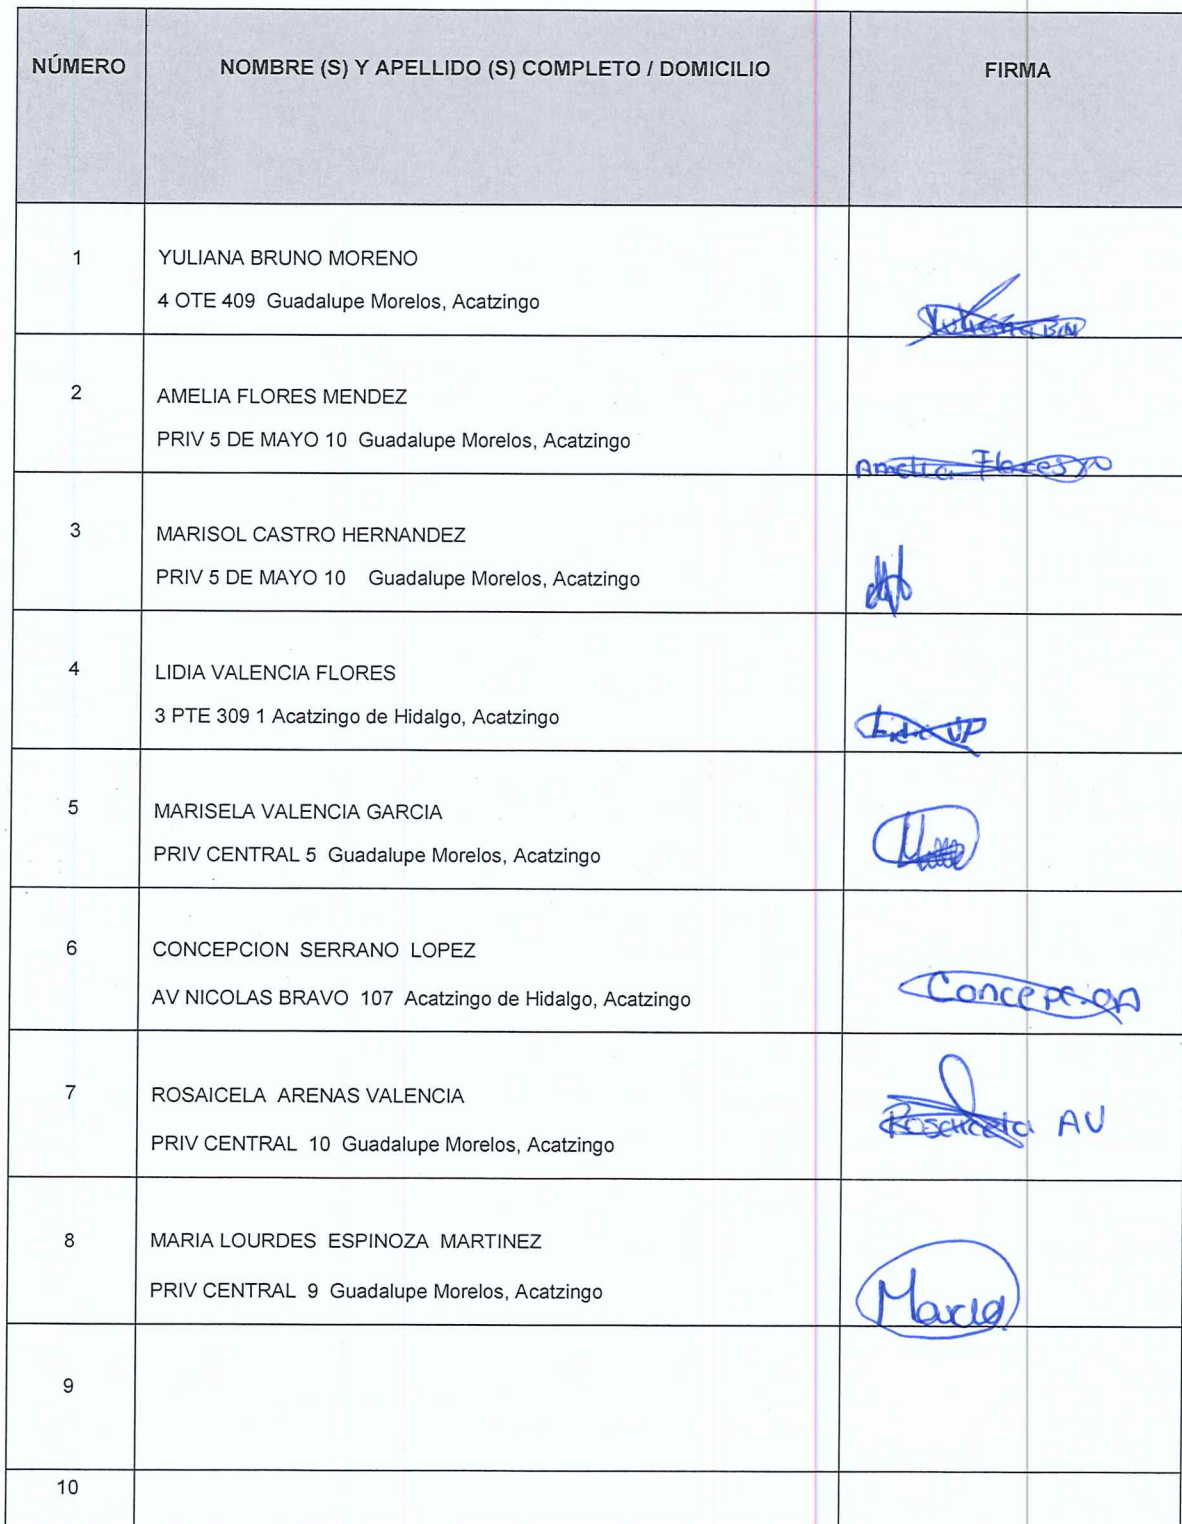 NÚMERO NOMBRE (S) Y APELLIDO (S) COMPLETO / DOMICILIO FIRMA
1 YULIANA BRUNO MORENO
4 OTE 409 Guadalupe Morelos, Acatzingo
Yuliana BM
2 AMELIA FLORES MENDEZ
PRIV 5 DE MAYO 10 Guadalupe Morelos, Acatzingo
Amelia Flores
3 MARISOL CASTRO HERNANDEZ
PRIV 5 DE MAYO 10 Guadalupe Morelos, Acatzingo
4 LIDIA VALENCIA FLORES
3 PTE 309 1 Acatzingo de Hidalgo, Acatzingo
Lidia
5 MARISELA VALENCIA GARCIA
PRIV CENTRAL 5 Guadalupe Morelos, Acatzingo
6 CONCEPCION SERRANO LOPEZ
AV NICOLAS BRAVO 107 Acatzingo de Hidalgo, Acatzingo
Concepcion
7 ROSAICELA ARENAS VALENCIA
PRIV CENTRAL 10 Guadalupe Morelos, Acatzingo
Rosaicela AV
8 MARIA LOURDES ESPINOZA MARTINEZ
PRIV CENTRAL 9 Guadalupe Morelos, Acatzingo
Maria
9
10